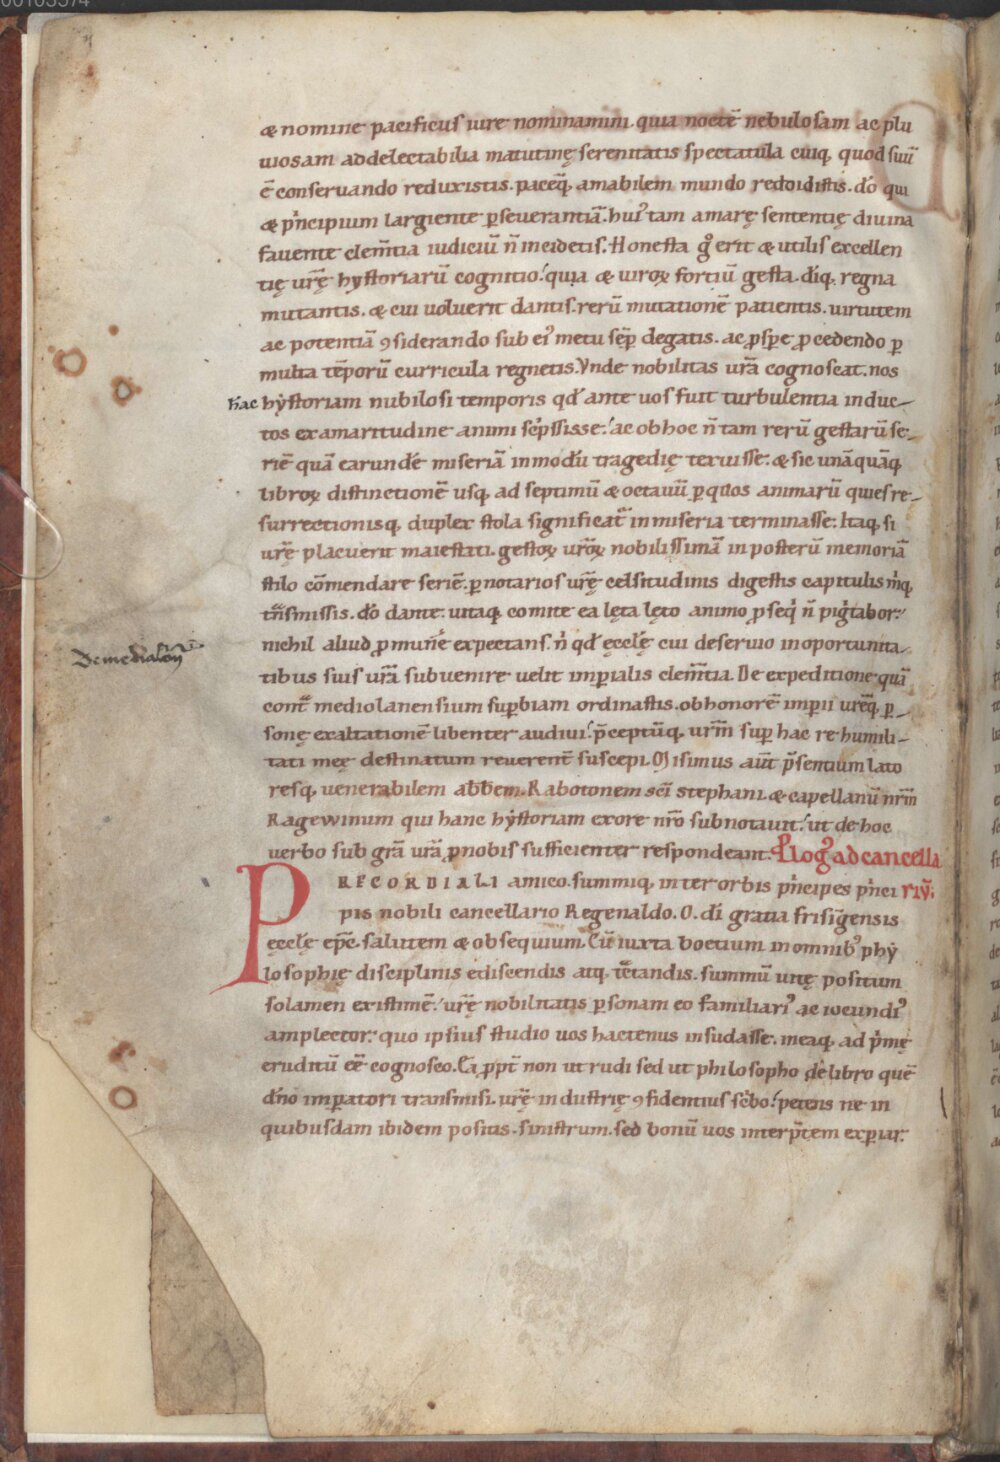 & nomine pacificus iure nominamini. quia noctē nebulosam ac plu
uiosam ad delectabilia matutinę serenitatis spectacula cuiq; quod suū
ē conseruando reduxistis. pacēq; amabilem mundo reddidistis. dō qui
& p̓ncipium largiente ꝑseuerantiā. hui᾽ tam amarę sententię diuina
fauente clem̄tia iudiciū n̄ incidetis. Honesta g͛ erit & utilis excellen
tię ur̄ę hystoriarū cognitio. quia & uiroꝝ fortiū gesta. dīq; regna
mutantis. & cui uoluerit dantis. rerū mutationē patientis. uirtutem
ac potentiā ꝯsiderando sub ei᾽ metu sēp degatis. ac ꝓspe ꝓcedendo ꝑ
multa tēporū curricula regnetis. Vnde nobilitas ur̄a cognoscat. nos
hac hẏstoriam nubilosi temporis qd̓ ante uos fuit turbulentia induc-
tos ex amaritudine animi sc͛pssisse. ac ob hoc n̄ tam rerū gestarū se-
riē quā earundē miseriā in modū tragedię texuisse. & sic unāquāq;
libroꝝ distinctionē usq; ad septimū & octauū ꝑ quos animarū quies re-
surrectionisq; duplex stola significat᷑ in miseria terminasse. Itaq; si
ur̄ę placuerit maiestati. gestoꝝ ur̄oꝝ nobilissimā in posterū memoriā
stilo cōmendare seriē. ꝑ notarios ur̄ę celsitudinis digestis capitulis m̓q;
tͣnsmissis. dō dante. uitaq; comite ea lęta lęto animo ꝓseq̓ n̄ pig͛tabor.
nichil aliud ꝓ munere expectans. n̓ qd̓ ęcclę cui deseruio in oportunita-
tibus suis ur̄a subuenire uelit imꝑialis clem̄tia. De expeditione quā
Demediolan̄
cont͛ mediolanensium suꝑbiam ordinastis. ob honorē imꝑii ur̄ęq; ꝑ-
sonę exaltationē libenter audiui. p̄ceptūq; urm̄ suꝑ hac re humili-
tati meę destinatum reuerent̄ suscepi. Misimus aūt p̄sentium lato
resq; uenerabilem abb̄em. Rabotonem sc̄i stephani. & capellanū nrm̄
Ragewinum qui hanc hẏstoriam ex ore nr̄o subnotauit. ut de hoc
uerbo sub grā ur̄a ꝓ nobis sufficienter respondeant. P̱log᾽ ad cancella
PRECORDIALI amico. summiq; inter orbis p̓ncipes p̓nci riū.
pis nobili cancellario Regenaldo. O. dī gratia frisīgensis
ęcclę ep̄c. salutem & obsequium. Cū iuxta boetium in omnib᾽ phẏ
losophię disciplinis ediscendis atq; tͣctandis. summū uitę positum
solamen existimē. ur̄ę nobilitatis ꝑsonam eo familiari᾽ ac iocundi᾽
amplector. quo ipsius studio uos hactenus insudasse. meaq; ad p̓mę
eruditū eē cognosco. Ea ꝓpt̄ non ut rudi sed ut philosopho de libro quē
dn̄o imꝑatori transmisi. ur̄ę industrię ꝯfidentius sc͛bo. petens ne in
quibusdam ibidem positis. sinistrum. sed bonū uos interp̄tem expiar.